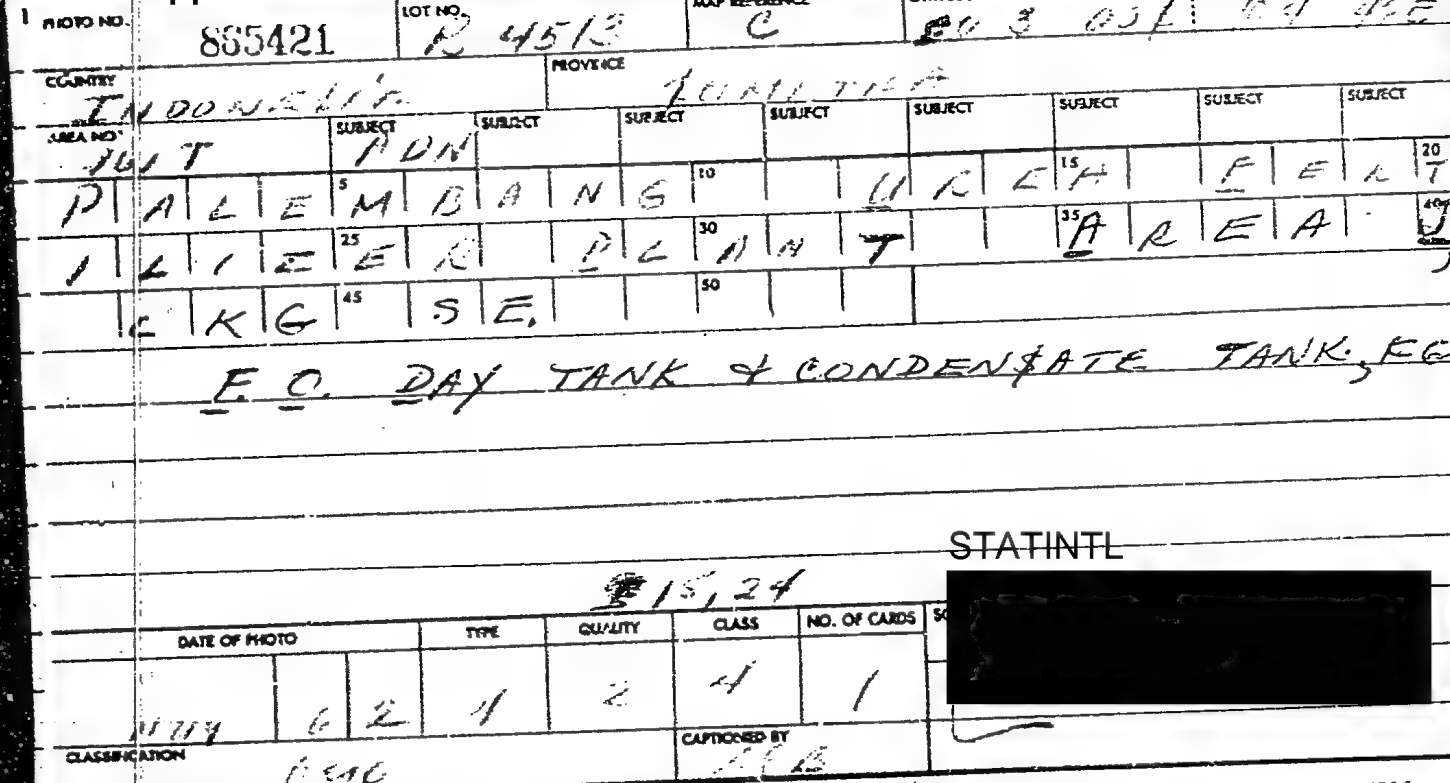 1 PHOTO NO. 865421 LOT NO. R 4513 MAP REFERENCE C
COUNTRY INDONESIA PROVINCE SUMATRA
AREA NO. SUBJECT SUBJECT SUBJECT SUBJECT SUBJECT SUBJECT SUBJECT SUBJECT
ADN
PALE 5 MBANG 10 UREH 15 FERT 20
ILIE 25 ER PL 30 ANT 35 AREA 40
LKG 45 SE. 50
F. O. DAY TANK & CONDENSATE TANK,
STATINTL
15, 24
DATE OF PHOTO TYPE QUALITY CLASS NO. OF CARDS
62 4 2 4 1
CLASSIFICATION CAPTIONED BY